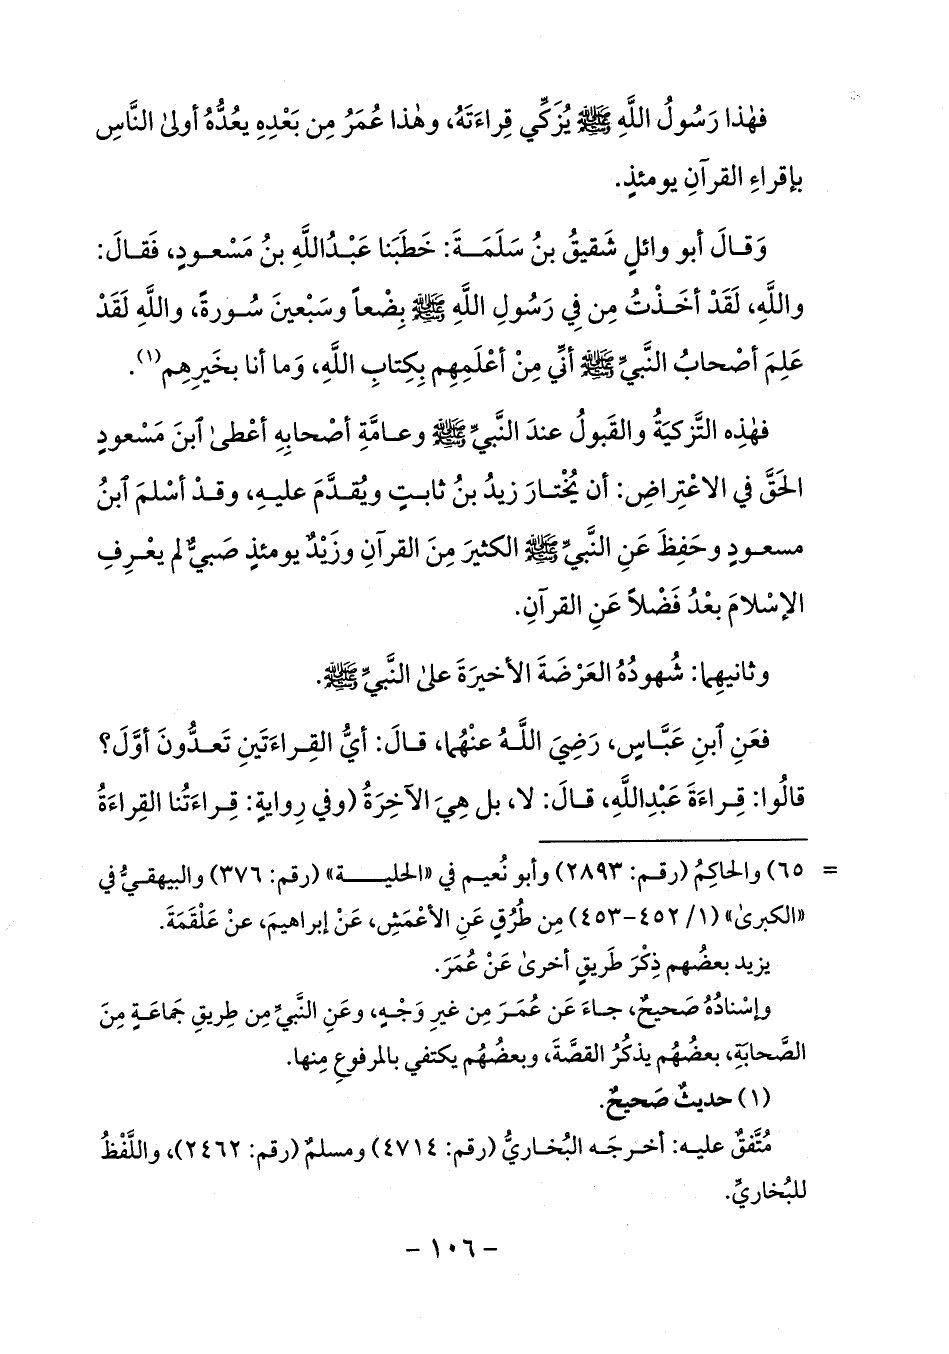 فهٰذا رَسُولُ اللَّهِ ﷺ يُزَكِّي قِراءَتَهُ، وهٰذا عُمَرُ مِن بَعْدِهِ يعُدُّهُ أولىٰ النَّاسِ
بإقراءِ القرآنِ يومئذٍ.
وَقـالَ أبو وائلٍ شَقيقُ بنُ سَلَمَـةَ: خَطَبَنا عَبْدُاللَّهِ بنُ مَسْعـودٍ، فَقالَ:
واللَّهِ، لَقَدْ أخَـذْتُ مِن فِي رَسُولِ اللَّهِ ﷺ بِضْعاً وسَبْعينَ سُورةً، واللَّهِ لَقَدْ
عَلِمَ أصْحابُ النَّبيِّ ﷺ أنِّي مِنْ أعْلَمِهِم بِكِتابِ اللَّهِ، وَما أنا بخَيرِهِم(١).
فهٰذِه التَّزكيَةُ والقَبولُ عندَ النَّبيِّ ﷺ وعـامَّةِ أصْحابِهِ أعْطىٰ ٱبنَ مَسْعودٍ
الحَقَّ في الاعْتِراضِ: أن يُخْتـارَ زيدُ بنُ ثابـتٍ ويُقـدَّمَ عليـهِ، وقـدْ أسْلمَ ٱبنُ
مسعـودٍ وحَفِظَ عَنِ النَّبيِّ ﷺ الكثيرَ مِنَ القرآنِ وزَيْدٌ يومئذٍ صَبيٌّ لم يعْـرِفِ
الإسْلامَ بعْدُ فَضْلاً عَنِ القرآنِ.
وثانيهِما: شُهودُهُ العَرْضَةَ الأخيرَةَ علىٰ النَّبيِّ ﷺ.
فعَنِ ٱبنِ عَبَّـاسٍ، رَضِيَ اللَّـهُ عنْهُما، قـالَ: أيُّ القِـراءَتَينِ تَعـدُّونَ أوَّلَ؟
قالُوا: قِـراءَةَ عَبْدِاللَّهِ، قـالَ: لا، بل هِيَ الآخِرَةُ (وفي رِوايةٍ: قِـراءَتُنا القِراءَةُ
= ٦٥) والحاكِمُ (رقـم: ٢٨٩٣) وأبو نُعيـم في «الحليـــة» (رقم: ٣٧٦) والبيهقـيُّ في
«الكبرىٰ» (١/ ٤٥٢-٤٥٣) مِن طُرُقٍ عَنِ الأعْمَشِ، عَنْ إبراهيمَ، عنْ عَلْقمَةَ.
يزيد بعضُهم ذِكْرَ طَريقٍ أخرىٰ عَنْ عُمَرَ.
وإسْنادُهُ صَحيحٌ، جـاءَ عَن عُمَـرَ مِن غيرِ وَجْـهٍ، وعَنِ النَّبيِّ مِن طِريقِ جَماعَةٍ مِنَ
الصَّحابَةِ، بعضُهُم يذكُرُ القصَّةَ، وبعضُهُم يكتفي بالمرفوعِ مِنها.
(١) حديثٌ صَحيحٌ.
مُتَّفقٌ عليـه: أخـرجَـه البُخـاريُّ (رقم: ٤٧١٤) ومسلمٌ (رقم: ٢٤٦٢)، واللَّفْظُ
للبُخاريِّ.
- ١٠٦ -